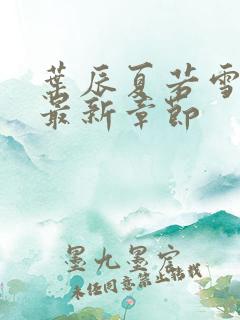 葉辰夏若雪
最新章節
墨九墨宫
未经同意禁止转载